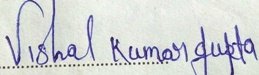 Vishal Kumar Gupta